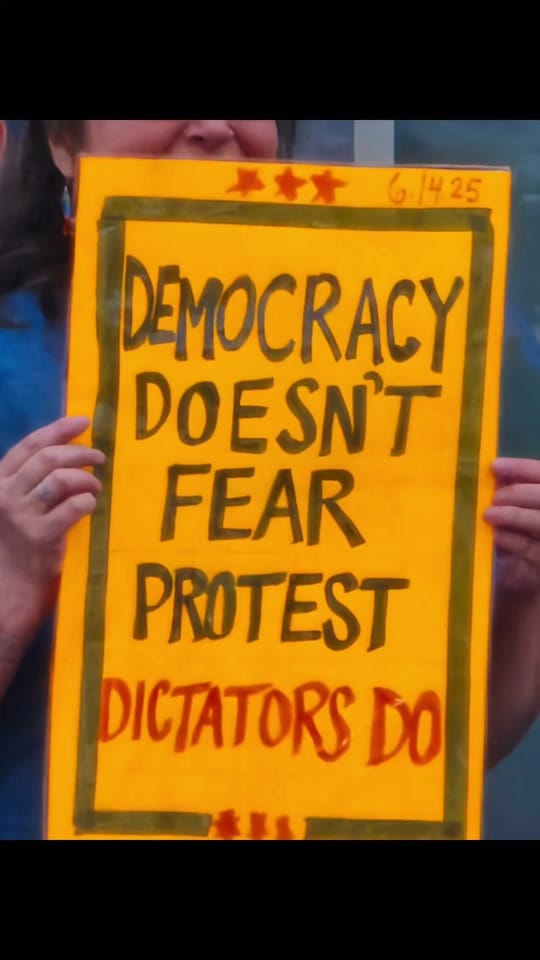 6.14.25
DEMOCRACY
DOESN'T
FEAR
PROTEST
DICTATORS DO